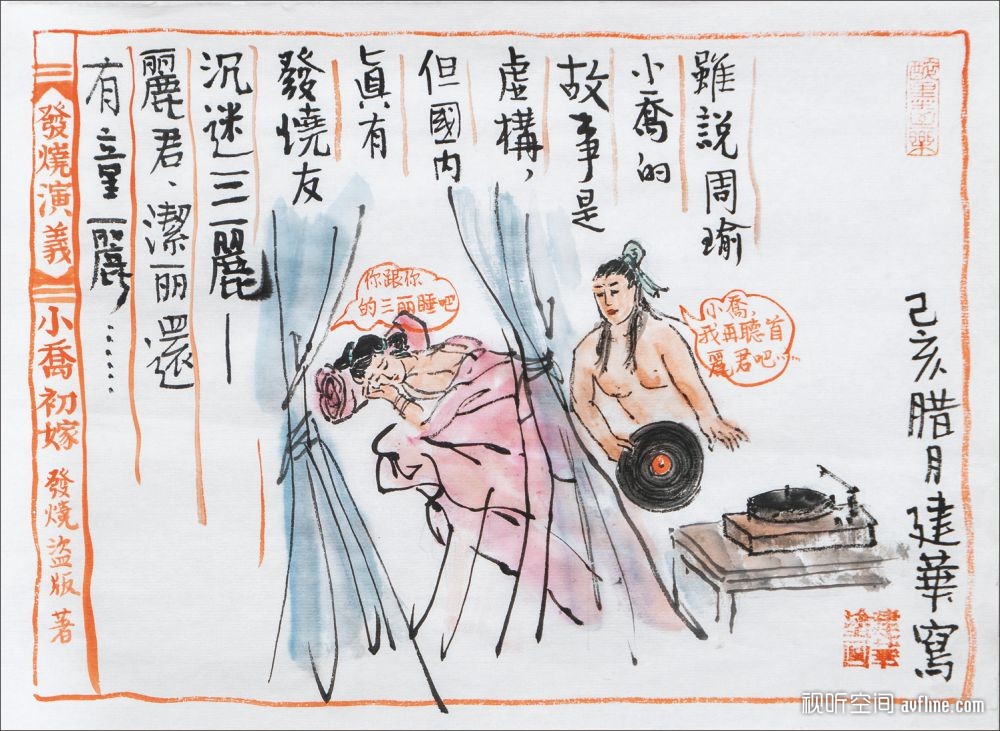 雖説周瑜
小喬的
故事是
虛構，
但國内
真有
發燒友
沉迷三麗—
麗君、潔丽還
有童麗……
你跟你
的三丽睡吧
小喬，
我再聽首
麗君吧……
發燒演義
小喬初嫁
發燒盜版 著
己亥腊月建華寫
视听空间 avfline.com